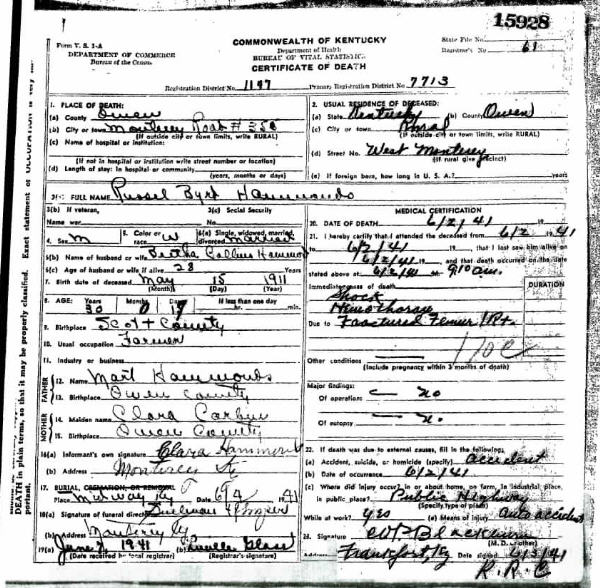 15928
Form V. S. 1-A
DEPARTMENT OF COMMERCE
Bureau of the Census
COMMONWEALTH OF KENTUCKY
Department of Health
BUREAU OF VITAL STATISTICS
CERTIFICATE OF DEATH
State File No.
Registrar's No. 61
Registration District No. 1197 Primary Registration District No. 7713
1. PLACE OF DEATH:
(a) County Owen
(b) City or town Monterey Road # 355
(If outside city or town limits, write RURAL)
(c) Name of hospital or institution:
(If not in hospital or institution write street number or location)
(d) Length of stay: In hospital or community
(years, months or days)
2. USUAL RESIDENCE OF DECEASED:
(a) State Kentucky (b) County Owen
(c) City or town Rural
(If outside city or town limits, write RURAL)
(d) Street No. West Monterey
(If rural give precinct)
(e) If foreign born, how long in U. S. A.? years
3(a) FULL NAME Russel Byrd Hammonds
3(b) If veteran,
Name war
3(c) Social Security
No.
4. Sex M
5. Color or race W
6(a) Single, widowed, married, divorced married
6(b) Name of husband or wife Bertha Collins Hammond
6(c) Age of husband or wife if alive 28 Years
7. Birth date of deceased May 15 1911
(Month) (Day) (Year)
8. AGE: Years Months Days If less than one day
30 0 17 hr. min.
9. Birthplace Scott County
10. Usual occupation Farmer
11. Industry or business
FATHER
12. Name Mart Hammonds
13. Birthplace Owen County
MOTHER
14. Maiden name Clara
15. Birthplace Owen County
16(a) Informant's own signature Clara Hammond
(b) Address Monterey Ky
17. BURIAL, CREMATION, OR REMOVAL
Place Midway Ky Date 6/4 1941
18(a) Signature of funeral director
(b) Address Monterey Ky
19(a) June 7, 1941 (b) Luella Glass
(Date received by local registrar) (Registrar's signature)
MEDICAL CERTIFICATION
20. DATE OF DEATH 6/2/41 19
21. I hereby certify that I attended the deceased from 6/2 1941
to 6/2/41 19 that I last saw him alive on
6/2/41 and that death occurred on the date
stated above at 6/2/41 at 9:10 am.
Immediate cause of death DURATION
Shock
Hemothorax
Due to Fractured Femur Rt.
Other conditions
(Include pregnancy within 3 months of death)
Major findings:
Of operations no
Of autopsy
22. If death was due to external causes, fill in the following:
(a) Accident, suicide, or homicide (specify) accident
(b) Date of occurrence 6/2/41
(c) Where did injury occur? In or about home, on farm, in industrial place, in public place? Public Highway
(Specify type of place)
While at work? yes (e) Means of injury auto accident
24. Signature W.P. Blackburn
(M. D. or other)
Address Frankfort, Ky Date signed 6/3/41
R.R.C